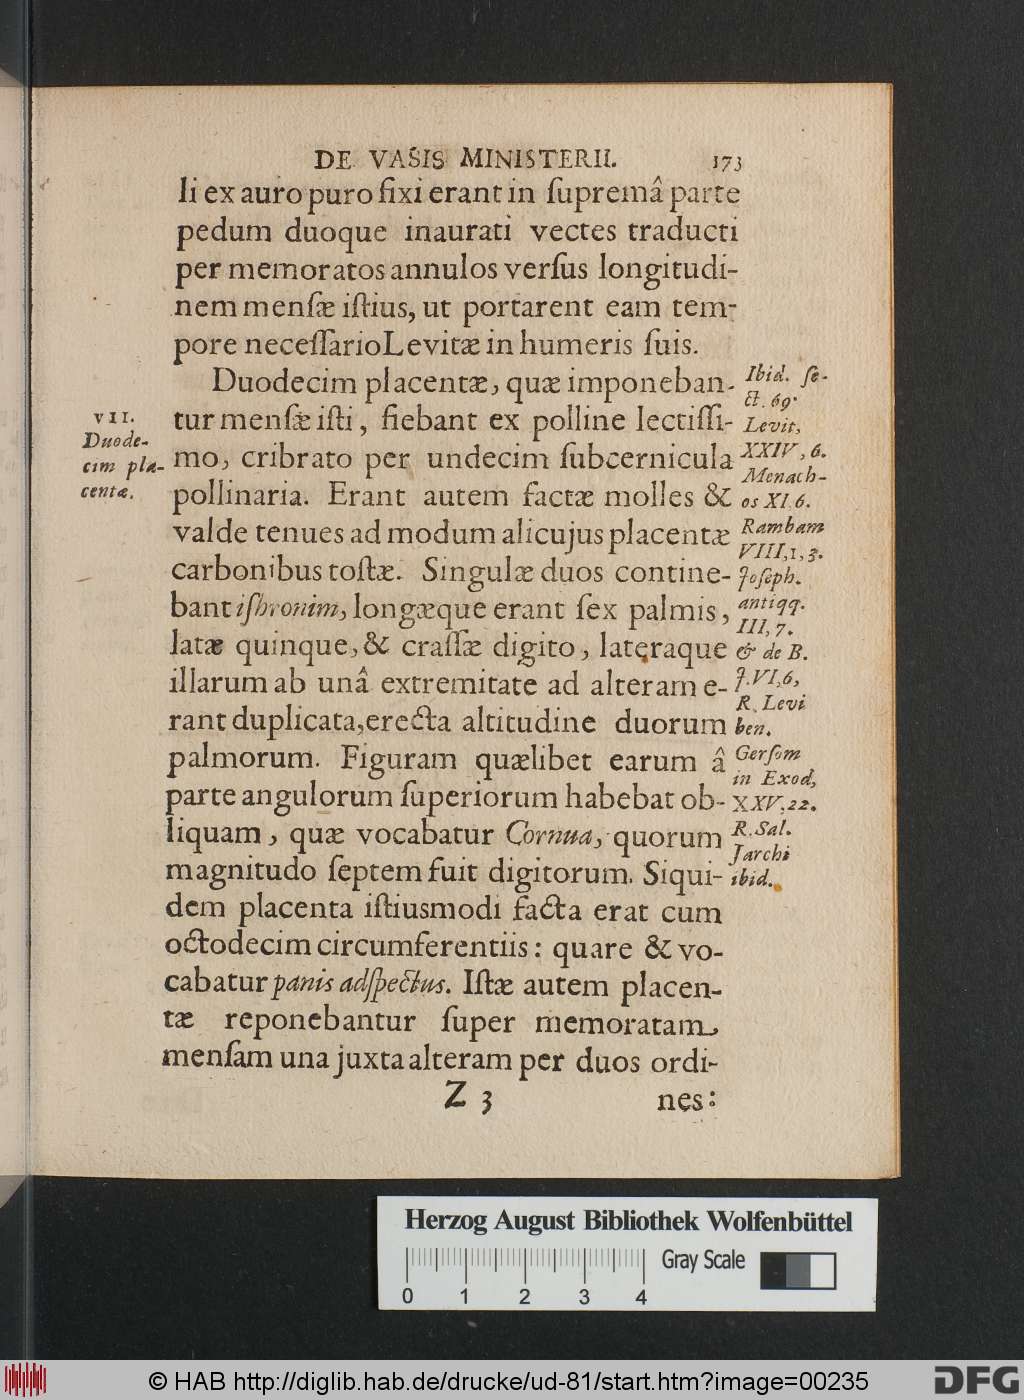 DE VASIS MINISTERII. 173
li ex auro puro fixi erant in ſupremâ parte
pedum duoque inaurati vectes traducti
per memoratos annulos verſus longitudi-
nem menſæ iſtius, ut portarent eam tem-
pore neceſſario Levitæ in humeris ſuis.
Duodecim placentæ, quæ imponeban-
tur menſæ iſti, fiebant ex polline lectiſſi-
mo, cribrato per undecim ſubcernicula
pollinaria. Erant autem factæ molles &
valde tenues ad modum alicujus placentæ
carbonibus toſtæ. Singulæ duos contine-
bant iſhronim, longæque erant ſex palmis,
latæ quinque, & craſſæ digito, lateraque
illarum ab unâ extremitate ad alteram e-
rant duplicata, erecta altitudine duorum
palmorum. Figuram quælibet earum â
parte angulorum ſuperiorum habebat ob-
liquam, quæ vocabatur Cornua, quorum
magnitudo ſeptem fuit digitorum. Siqui-
dem placenta iſtiusmodi facta erat cum
octodecim circumferentiis: quare & vo-
cabatur panis adſpectus. Iſtæ autem placen-
tæ reponebantur ſuper memoratam
menſam una juxta alteram per duos ordi-
Z 3 nes:
VII.
Duode-
cim pla-
centæ.
Ibid. ſe-
ct. 69.
Levit,
XXIV, 6.
Menach-
os XI. 6.
Rambam
VIII, 1, 3.
Joſeph.
antiqq.
III, 7.
& de B.
J. VI, 6,
R. Levi
ben.
Gerſom
in Exod,
XXV, 22.
R. Sal.
Jarchi
ibid.
Herzog August Bibliothek Wolfenbüttel
Gray Scale
0 1 2 3 4
© HAB http://diglib.hab.de/drucke/ud-81/start.htm?image=00235
DFG